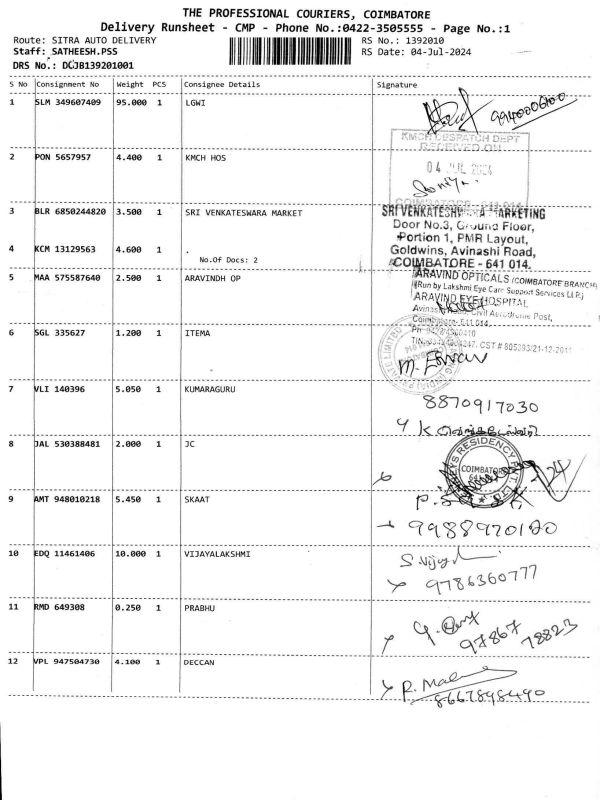 THE PROFESSIONAL COURIERS, COIMBATORE
Delivery Runsheet - CMP - Phone No.:0422-3505555 - Page No.:1
Route: SITRA AUTO DELIVERY RS No.: 1392010
Staff: SATHEESH.PSS RS Date: 04-Jul-2024
DRS No.: DCJB139201001
S No Consignment No Weight PCS Consignee Details Signature
1 SLM 349607409 95.000 1 LGWI
9940006100
KMCH DESPATCH DEPT
RECEIVED ON
2 PON 5657957 4.400 1 KMCH HOS
04 JUL 2024
COIMBATORE - 641 014
3 BLR 6850244820 3.500 1 SRI VENKATESWARA MARKET
SRI VENKATESHWARA MARKETING
Door No.3, Ground Floor,
Portion 1, PMR Layout,
Goldwins, Avinashi Road,
COIMBATORE - 641 014.
4 KCM 13129563 4.600 1 .
No.Of Docs: 2
5 MAA 575587640 2.500 1 ARAVINDH OP
ARAVIND OPTICALS (COIMBATORE BRANCH)
(Run by Lakshmi Eye Care Support Services LLP.)
ARAVIND EYE HOSPITAL
Avinashi Road, Civil Aerodrome Post,
Coimbatore-641 014.
6 SGL 335627 1.200 1 ITEMA
M. Eswaran
7 VLI 140396 5.050 1 KUMARAGURU
8870917030
8 JAL 530388481 2.000 1 JC
RESIDENCY PVT. LTD
COIMBATORE
9 AMT 948010218 5.450 1 SKAAT
9988970120
10 EDQ 11461406 10.000 1 VIJAYALAKSHMI
S. Vijay
9786360777
11 RMD 649308 0.250 1 PRABHU
97867 78823
12 VPL 947504730 4.100 1 DECCAN
8667898490